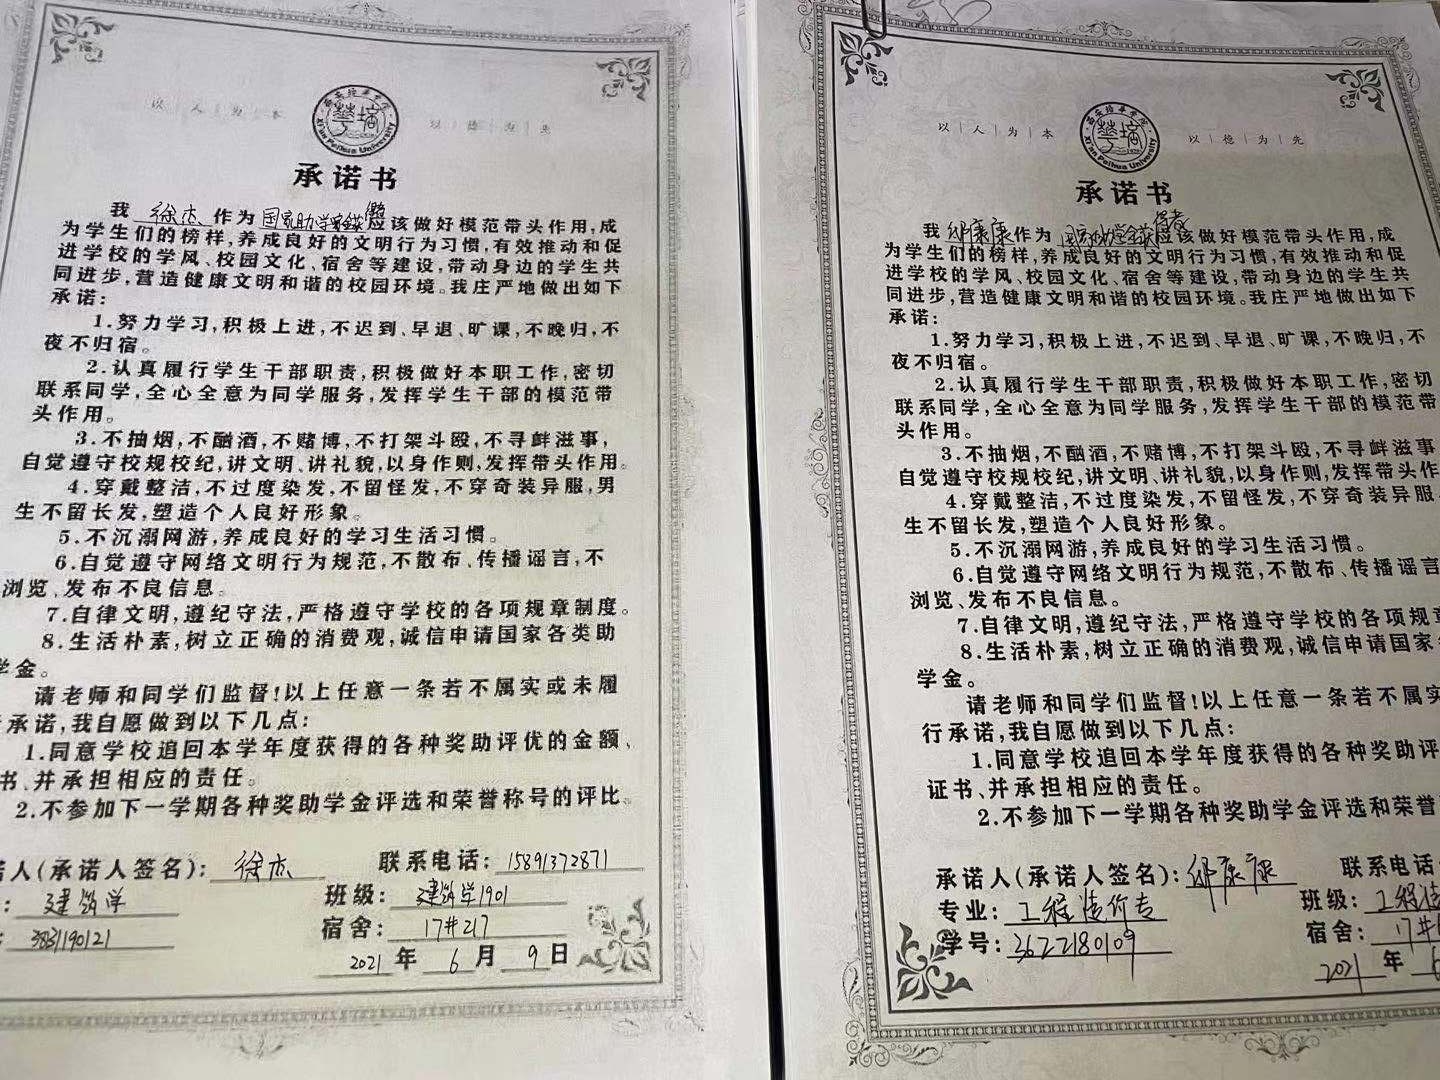 以人为本
西安培华学院
Xi'an Peihua University
以德为先
承诺书
我 徐杰 作为 国家助学金获得者 应该做好模范带头作用,成
为学生们的榜样,养成良好的文明行为习惯,有效推动和促
进学校的学风、校园文化、宿舍等建设,带动身边的学生共
同进步,营造健康文明和谐的校园环境。我庄严地做出如下
承诺:
1.努力学习,积极上进,不迟到、早退、旷课,不晚归,不
夜不归宿。
2.认真履行学生干部职责,积极做好本职工作,密切
联系同学,全心全意为同学服务,发挥学生干部的模范带
头作用。
3.不抽烟,不酗酒,不赌博,不打架斗殴,不寻衅滋事,
自觉遵守校规校纪,讲文明、讲礼貌,以身作则,发挥带头作用。
4.穿戴整洁,不过度染发,不留怪发,不穿奇装异服,男
生不留长发,塑造个人良好形象。
5.不沉溺网游,养成良好的学习生活习惯。
6.自觉遵守网络文明行为规范,不散布、传播谣言,不
浏览、发布不良信息。
7.自律文明,遵纪守法,严格遵守学校的各项规章制度。
8.生活朴素,树立正确的消费观,诚信申请国家各类助
学金。
请老师和同学们监督!以上任意一条若不属实或未履
承诺,我自愿做到以下几点:
1.同意学校追回本学年度获得的各种奖助评优的金额、
书、并承担相应的责任。
2.不参加下一学期各种奖助学金评选和荣誉称号的评比。
人(承诺人签名): 徐杰 联系电话: 15891372871
: 建筑学 班级: 建筑学1901
: 3831190121 宿舍: 17#217
2021 年 6 月 9 日
以人为本
西安培华学院
Xi'an Peihua University
以德为先
承诺书
我 邱康康 作为 国家助学金获得者 应该做好模范带头作用,成
为学生们的榜样,养成良好的文明行为习惯,有效推动和促
进学校的学风、校园文化、宿舍等建设,带动身边的学生共
同进步,营造健康文明和谐的校园环境。我庄严地做出如下
承诺:
1.努力学习,积极上进,不迟到、早退、旷课,不晚归,不
夜不归宿。
2.认真履行学生干部职责,积极做好本职工作,密切
联系同学,全心全意为同学服务,发挥学生干部的模范带
头作用。
3.不抽烟,不酗酒,不赌博,不打架斗殴,不寻衅滋事
自觉遵守校规校纪,讲文明、讲礼貌,以身作则,发挥带头作
4.穿戴整洁,不过度染发,不留怪发,不穿奇装异服,
生不留长发,塑造个人良好形象。
5.不沉溺网游,养成良好的学习生活习惯。
6.自觉遵守网络文明行为规范,不散布、传播谣言
浏览、发布不良信息。
7.自律文明,遵纪守法,严格遵守学校的各项规章
8.生活朴素,树立正确的消费观,诚信申请国家
学金。
请老师和同学们监督!以上任意一条若不属实
行承诺,我自愿做到以下几点:
1.同意学校追回本学年度获得的各种奖助评
证书、并承担相应的责任。
2.不参加下一学期各种奖助学金评选和荣誉
承诺人(承诺人签名): 邱康康 联系电话
专业: 工程造价专 班级: 工程造
学号: 3622180109 宿舍: 17#
2021 年 6